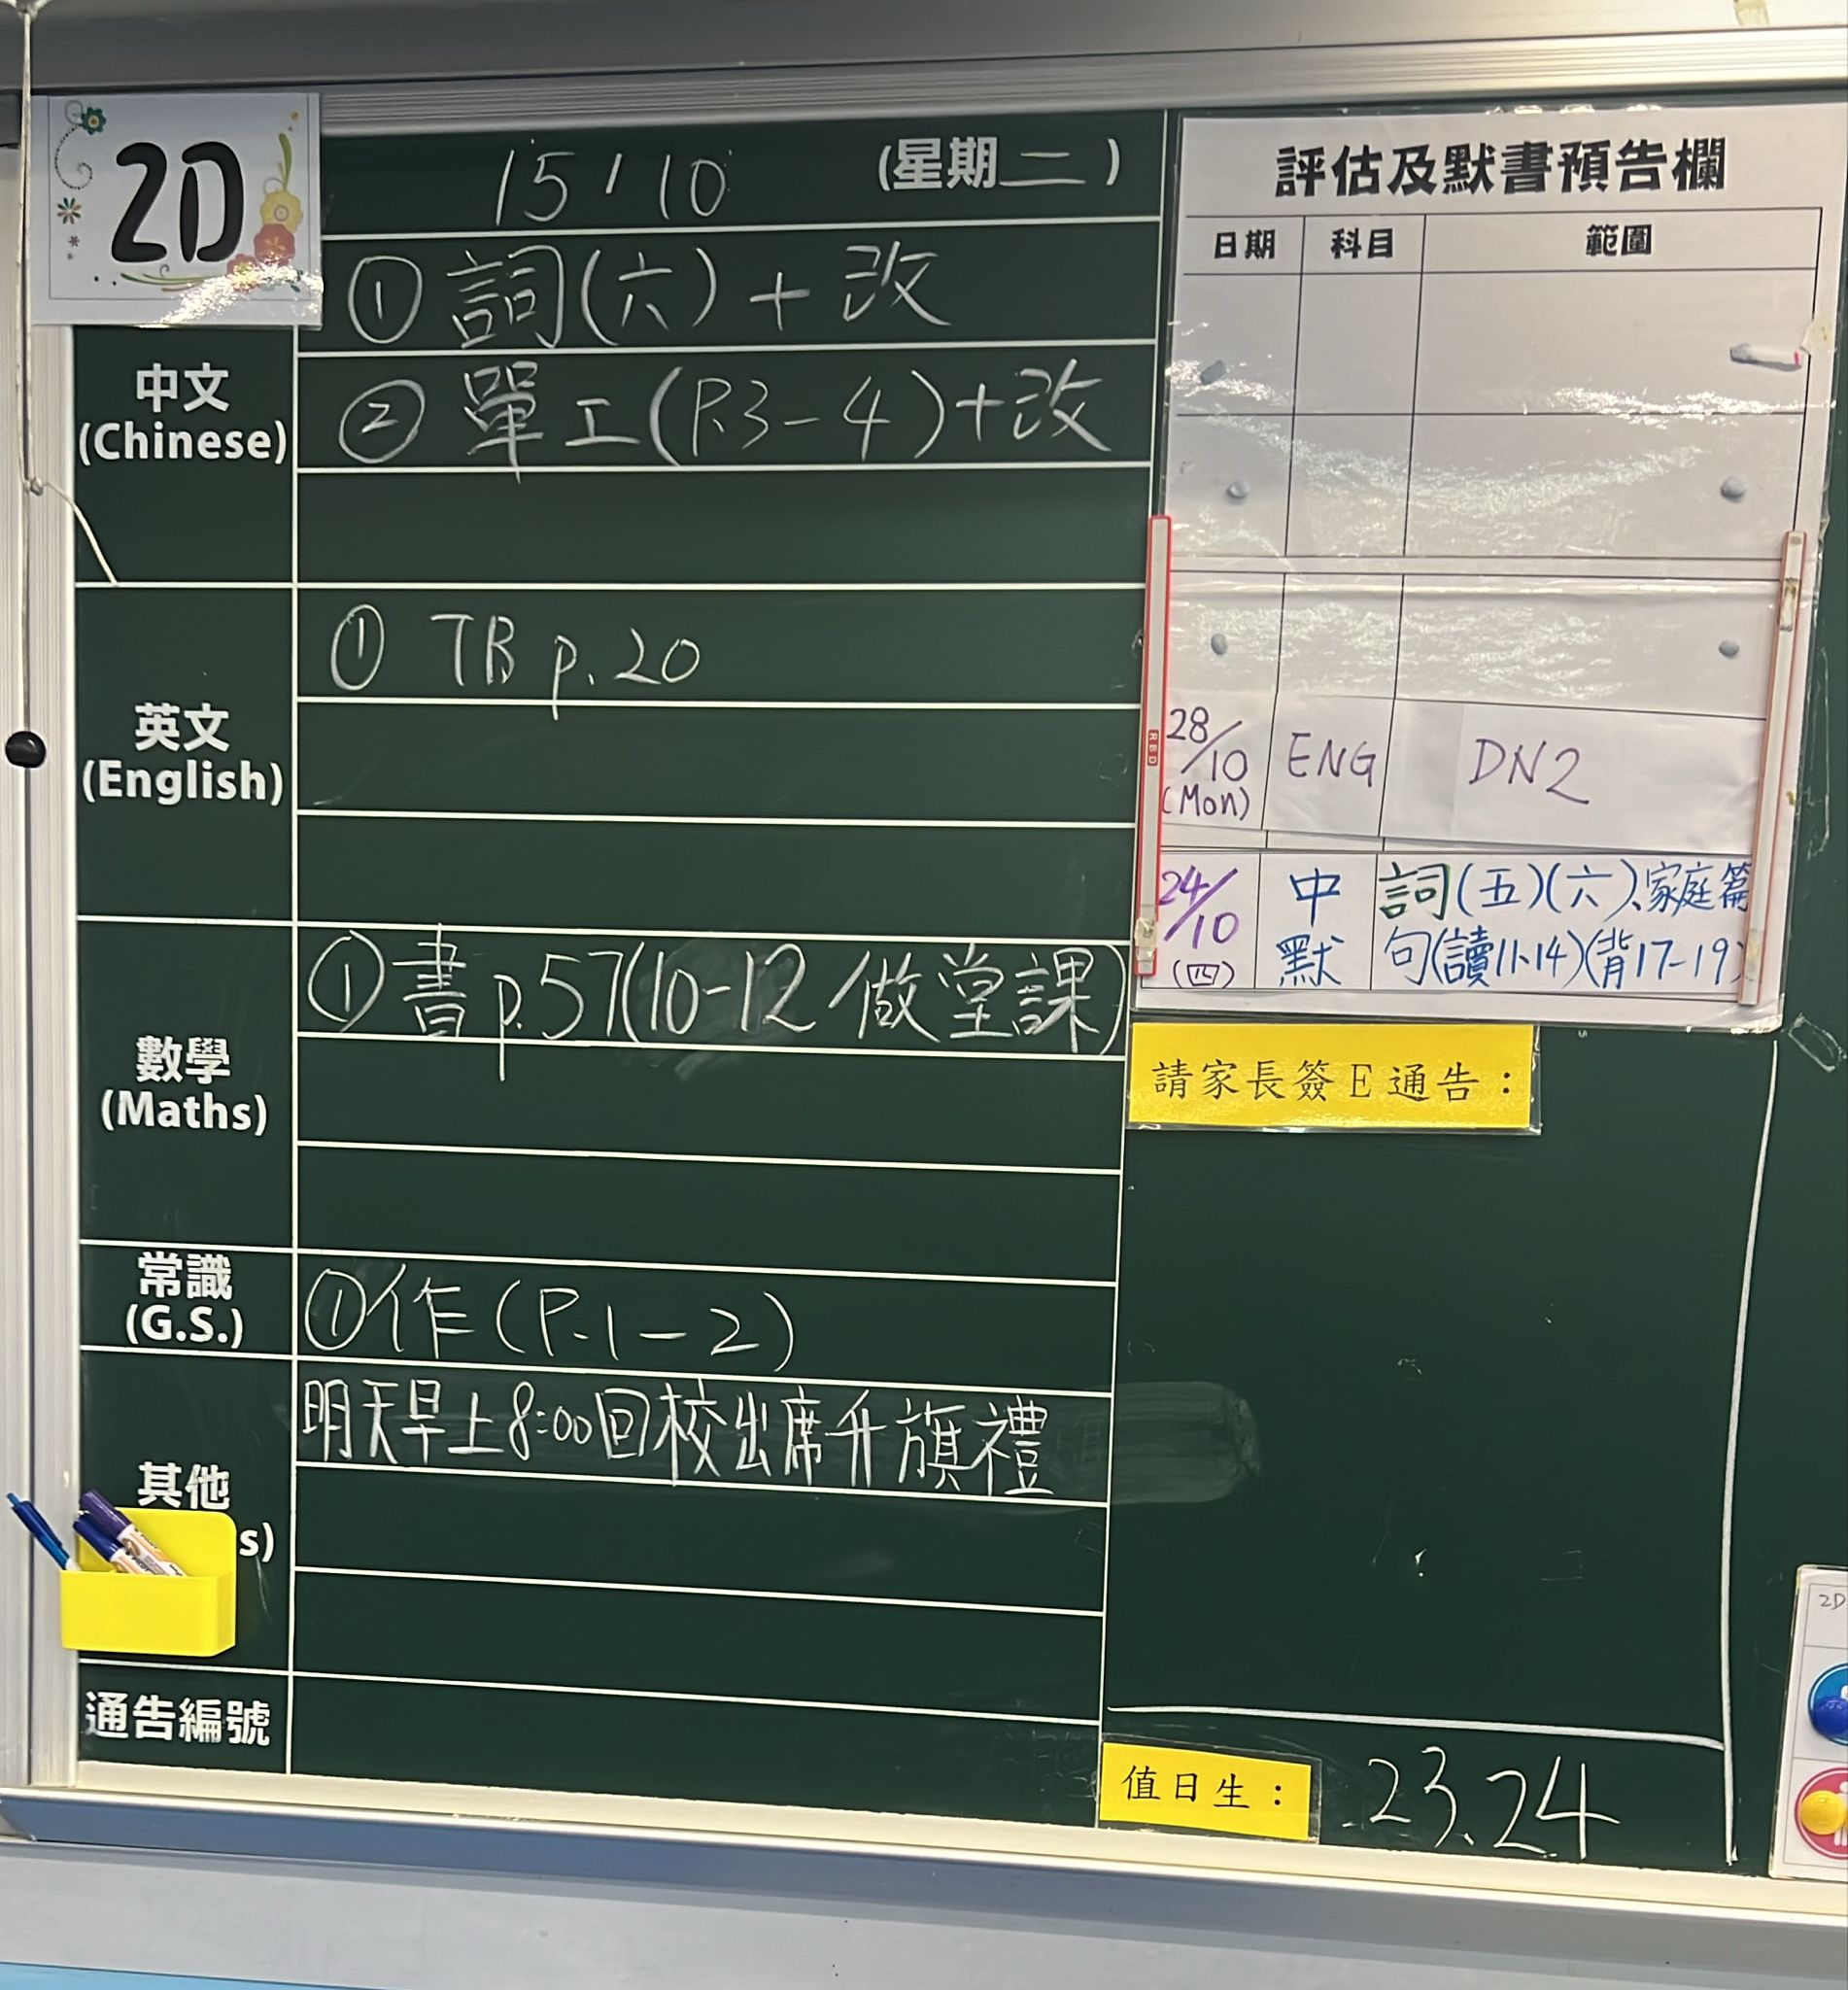 2D
15/10 (星期二)
中文
(Chinese)
① 詞(六)+改
② 單工(P.3-4)+改
英文
(English)
① TB p.20
數學
(Maths)
① 書p.57(10-12做堂課)
常識
(G.S.)
①作(P.1-2)
其他
s)
明天早上8:00回校出席升旗禮
通告編號
評估及默書預告欄
日期 科目 範圍
28/10 (Mon) ENG DN2
24/10 (四) 中默 詞(五)(六)、家庭篇
句(讀11-14)(背17-19)
RBD
請家長簽E通告:
值日生: 23.24
2D